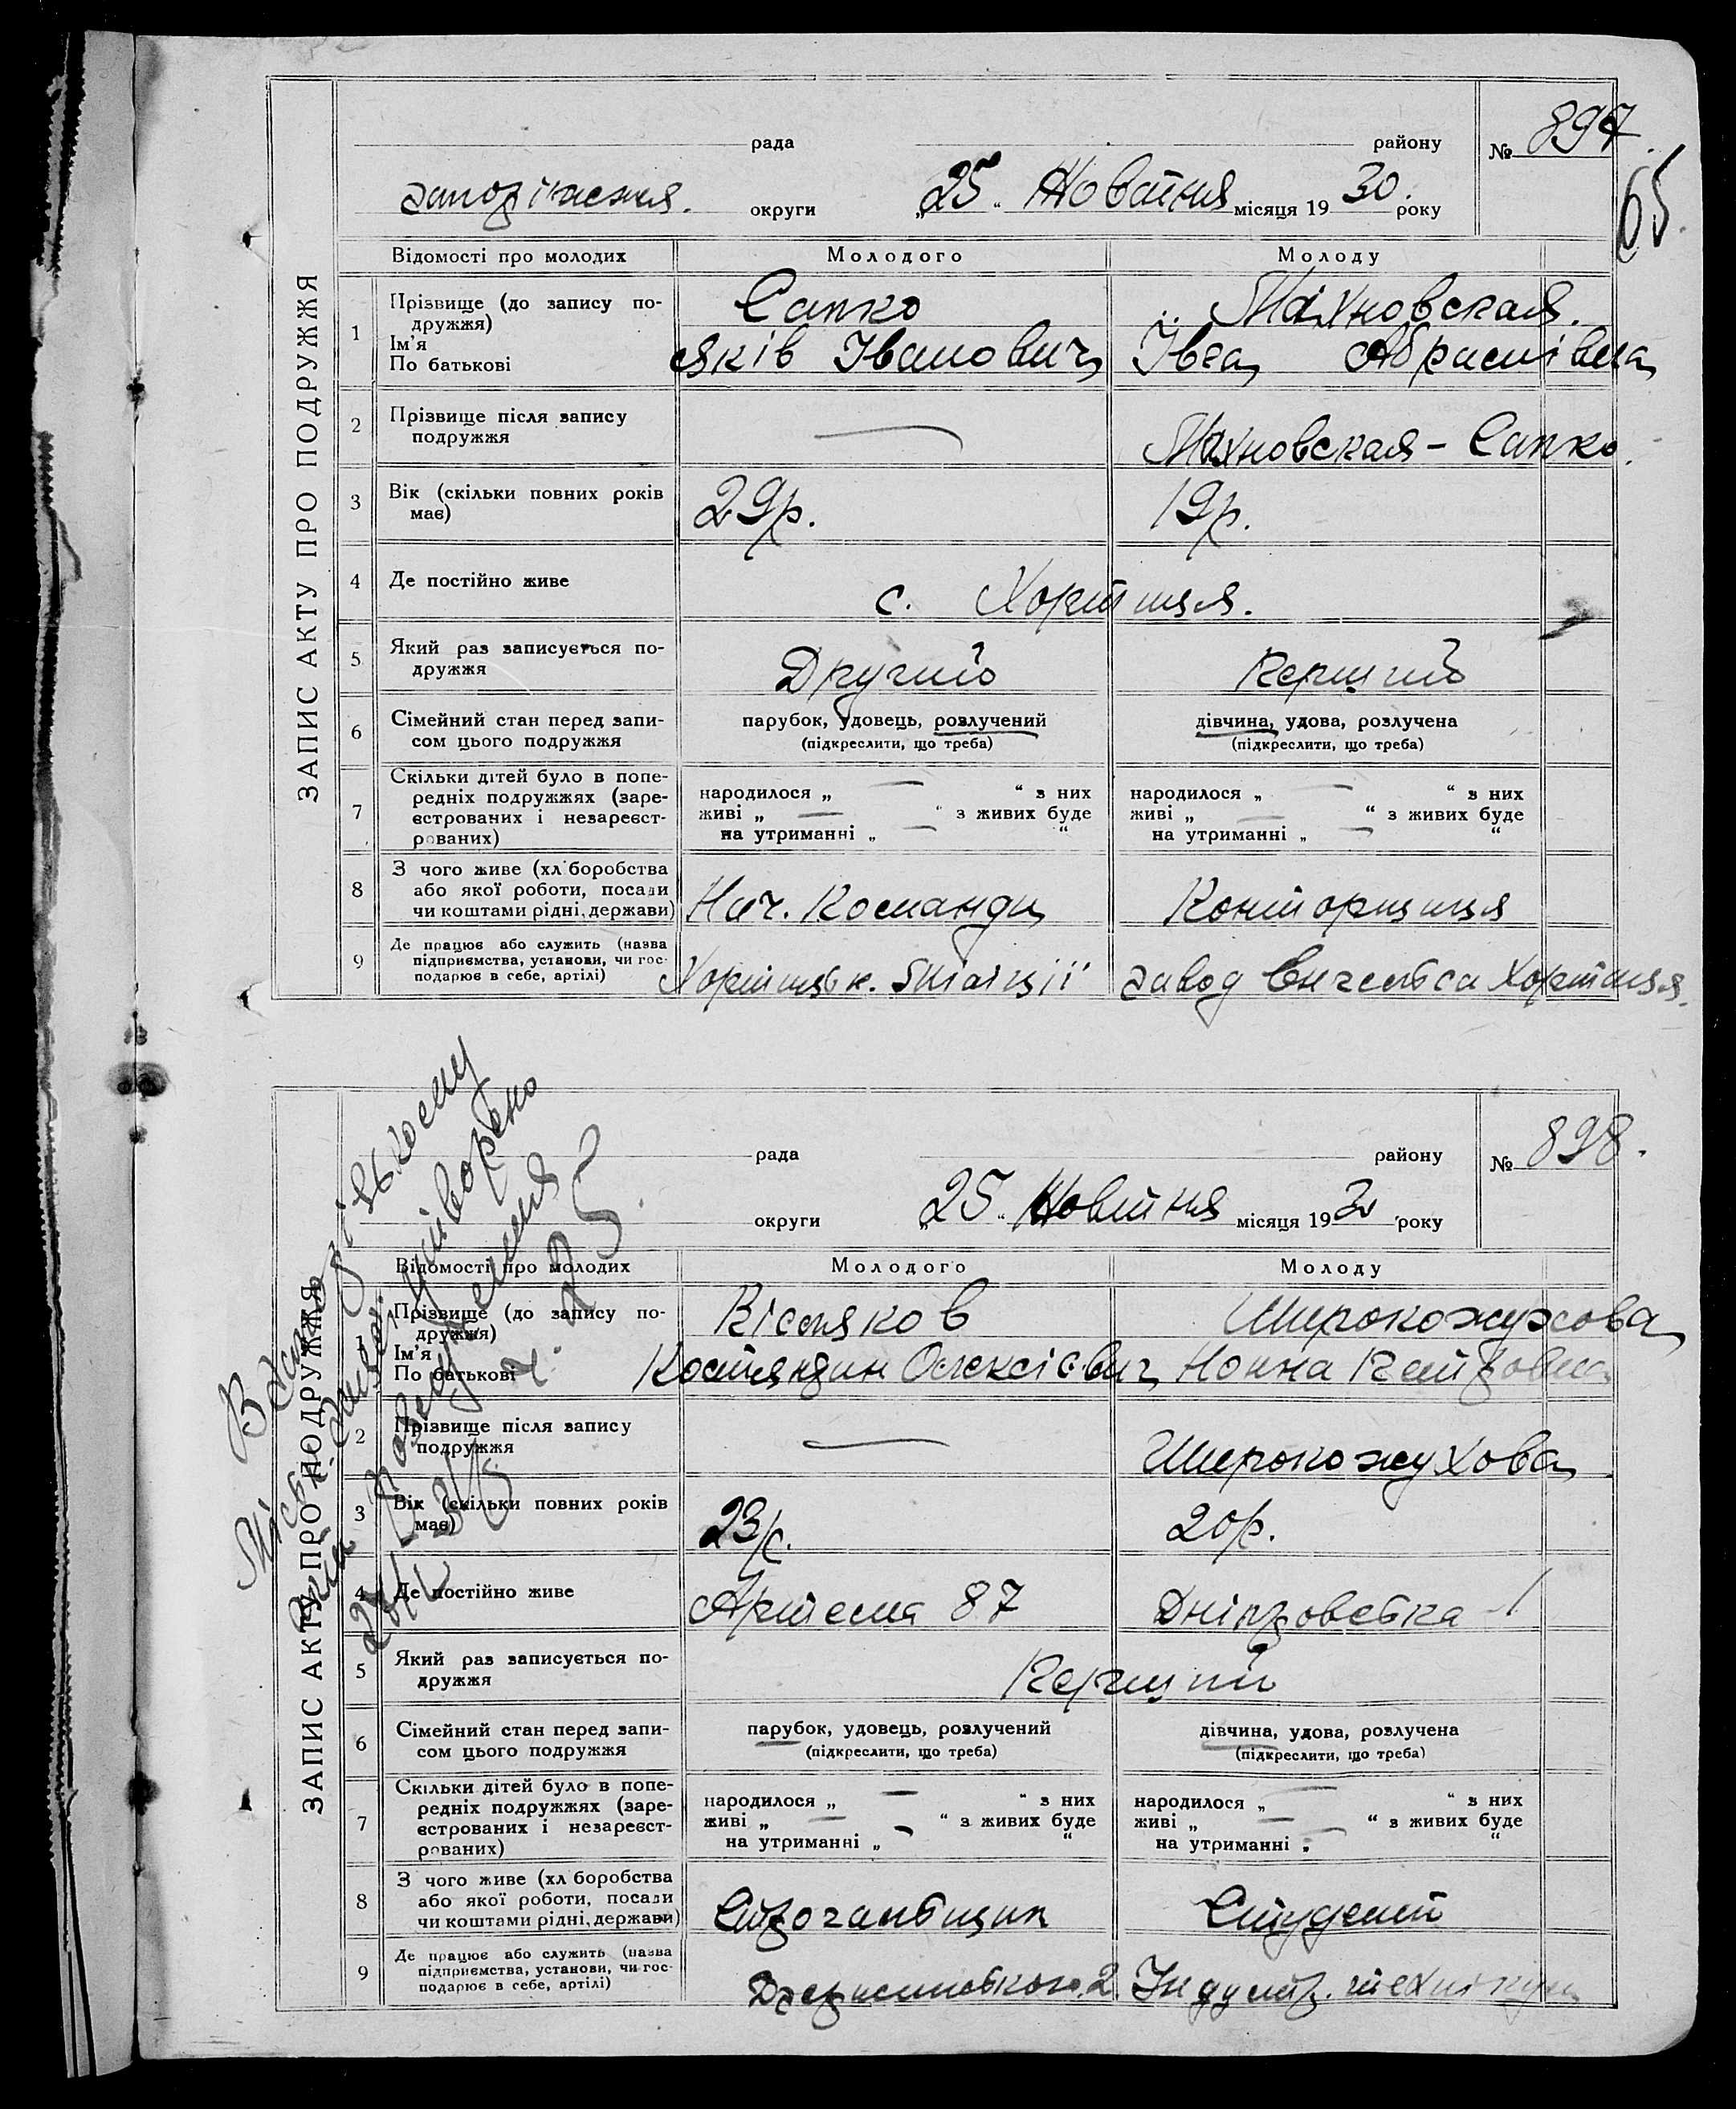 рада району № 897.
65.
округи „25“ Жовтня місяця 1930. року
ЗАПИС АКТУ ПРО ПОДРУЖЖЯ
Відомості про молодих Молодого Молоду
1 Прізвище (до запису по-
дружжя)
Сапко Махновская.
Ім'я
По батькові
Яків Іванович Абрамівна
2 Прізвище після запису
подружжя
— Махновская - Сапко.
3 Вік (скільки повних років
має)
29р. 19р.
4 Де постійно живе с. Хортиця.
5 Який раз записується по-
дружжя
Другий Перший
6 Сімейний стан перед запи-
сом цього подружжя
парубок, удовець, розлучений дівчина, удова, розлучена
(підкреслити, що треба) (підкреслити, що треба)
7 Скільки дітей було в попе-
редніх подружжях (заре-
єстрованих і незареєст-
рованих)
народилося „ — “ з них народилося „ — “ з них
живі „ — “ з живих буде живі „ — “ з живих буде
на утриманні „ — “ на утриманні „ — “
8 З чого живе (хліборобства
або якої роботи, посади
чи коштами рідні, держави)
Нач. Команди Конторщиця
9 Де працює або служить (назва
підприємства, установи, чи гос-
подарює в себе, артілі)
Хортицьк. Станції завод Енгельса Хортиця.
рада району № 898.
округи „25“ Жовтня місяця 1930 року
ЗАПИС АКТУ ПРО ПОДРУЖЖЯ
Відомості про молодих Молодого Молоду
1 Прізвище (до запису по-
дружжя)
Широкожухова
Ім'я
По батькові
Костянтин Олексієвич Нонна Петровна
2 Прізвище після запису
подружжя
— Широкожухова
3 Вік (скільки повних років
має)
23р. 20р.
4 Де постійно живе Артема 87 Дніпровська - 1
5 Який раз записується по-
дружжя
Перший
6 Сімейний стан перед запи-
сом цього подружжя
парубок, удовець, розлучений дівчина, удова, розлучена
(підкреслити, що треба) (підкреслити, що треба)
7 Скільки дітей було в попе-
редніх подружжях (заре-
єстрованих і незареєст-
рованих)
народилося „ — “ з них народилося „ — “ з них
живі „ — “ з живих буде живі „ — “ з живих буде
на утриманні „ — “ на утриманні „ — “
8 З чого живе (хліборобства
або якої роботи, посади
чи коштами рідні, держави)
Строгальщик Студент
9 Де працює або служить (назва
підприємства, установи, чи гос-
подарює в себе, артілі)
Індустр. технікум